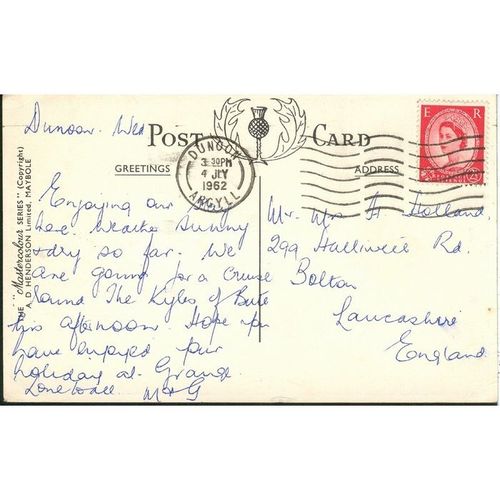 Dunoon. Wed
POST CARD
GREETINGS
ADDRESS
DUNOON
3 30PM
4 JLY
1962
ARGYLL
E R
THE "Mastercolour SERIES" (Copyright)
A. D. HENDERSON Limited, MAYBOLE
Enjoying our
here Weather Sunny
+ dry so far. We
are going for a Cruise
round The Kyles of Bute
this afternoon. Hope you
have enjoyed your
holiday at Grange.
Love to all. M + G
Mr. Mrs H Holland.
299 Halliwell Rd.
Bolton
Lancashire
England